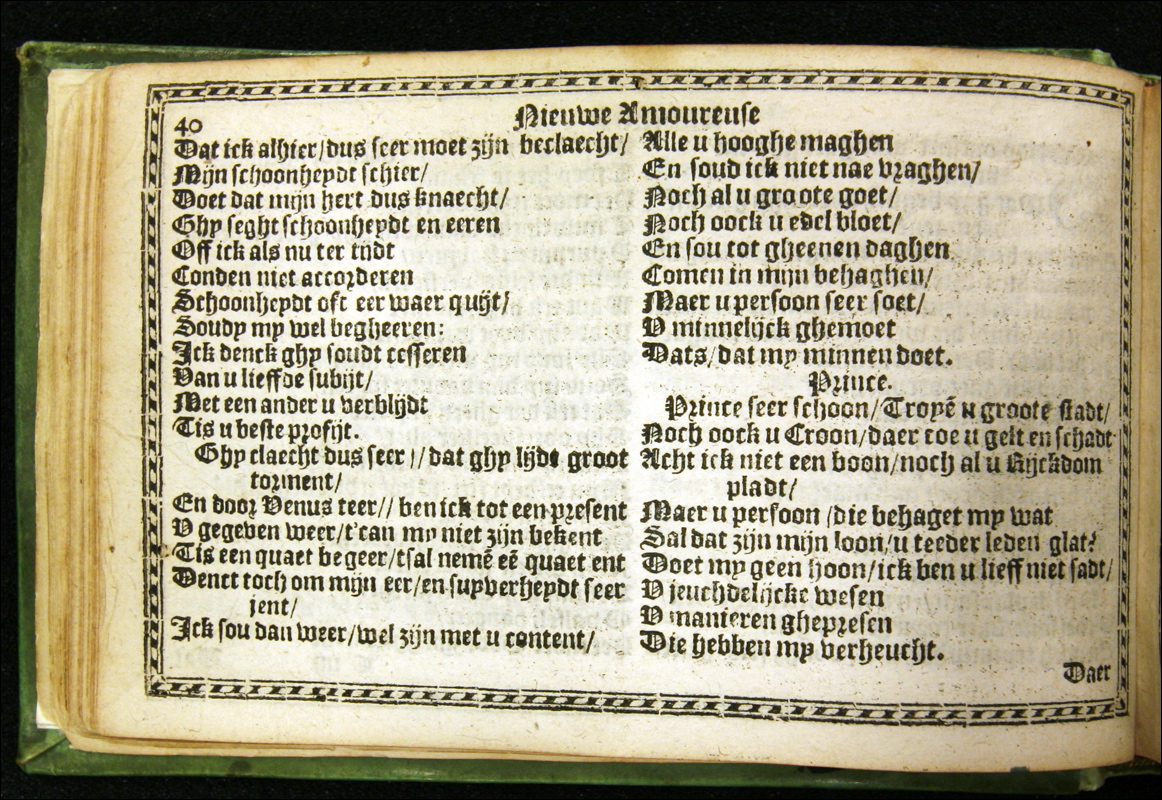 40
Nieuwe Amoureuse
Dat ick alhier/dus seer moet zijn beclaecht/
Mijn schoonheydt schier/
Doet dat mijn hert dus knaecht/
Ghy seght schoonheydt en eeren
Off ick als nu ter tijdt
Conden niet accorderen
Schoonheydt oft eer waer quijt/
Soudy my wel begheeren:
Ick denck ghy soudt cesseren
Van u lieffde subijt/
Met een ander u verblijdt
Tis u beste profijt.
Ghy claecht dus seer // dat ghy lijdt groot
torment/
En door Venus teer// ben ick tot een present
V gegeven weer/t'can my niet zijn bekent
Tis een quaet begeer/tsal nemē eē quaet ent
Denct toch om mijn eer/en suyverheydt seer
jent/
Ick sou dan weer/wel zijn met u content/
Alle u hooghe maghen
En soud ick niet nae vraghen/
Noch al u groote goet/
Noch oock u edel bloet/
En sou tot gheenen daghen
Comen in mijn behaghen/
Maer u persoon seer soet/
V minnelijck ghemoet
Dats/dat my minnen doet.
Prince.
Prince seer schoon/Troyē u groote stadt/
Noch oock u Croon/daer toe u gelt en schadt
Acht ick niet een boon/noch al u Rijckdom
pladt/
Maer u persoon /die behaget my wat
Sal dat zijn mijn loon/u teeder leden glat?
Doet my geen hoon/ick ben u lieff niet sadt/
V jeuchdelijcke wesen
V manieren ghepresen
Die hebben my verheucht.
Daer